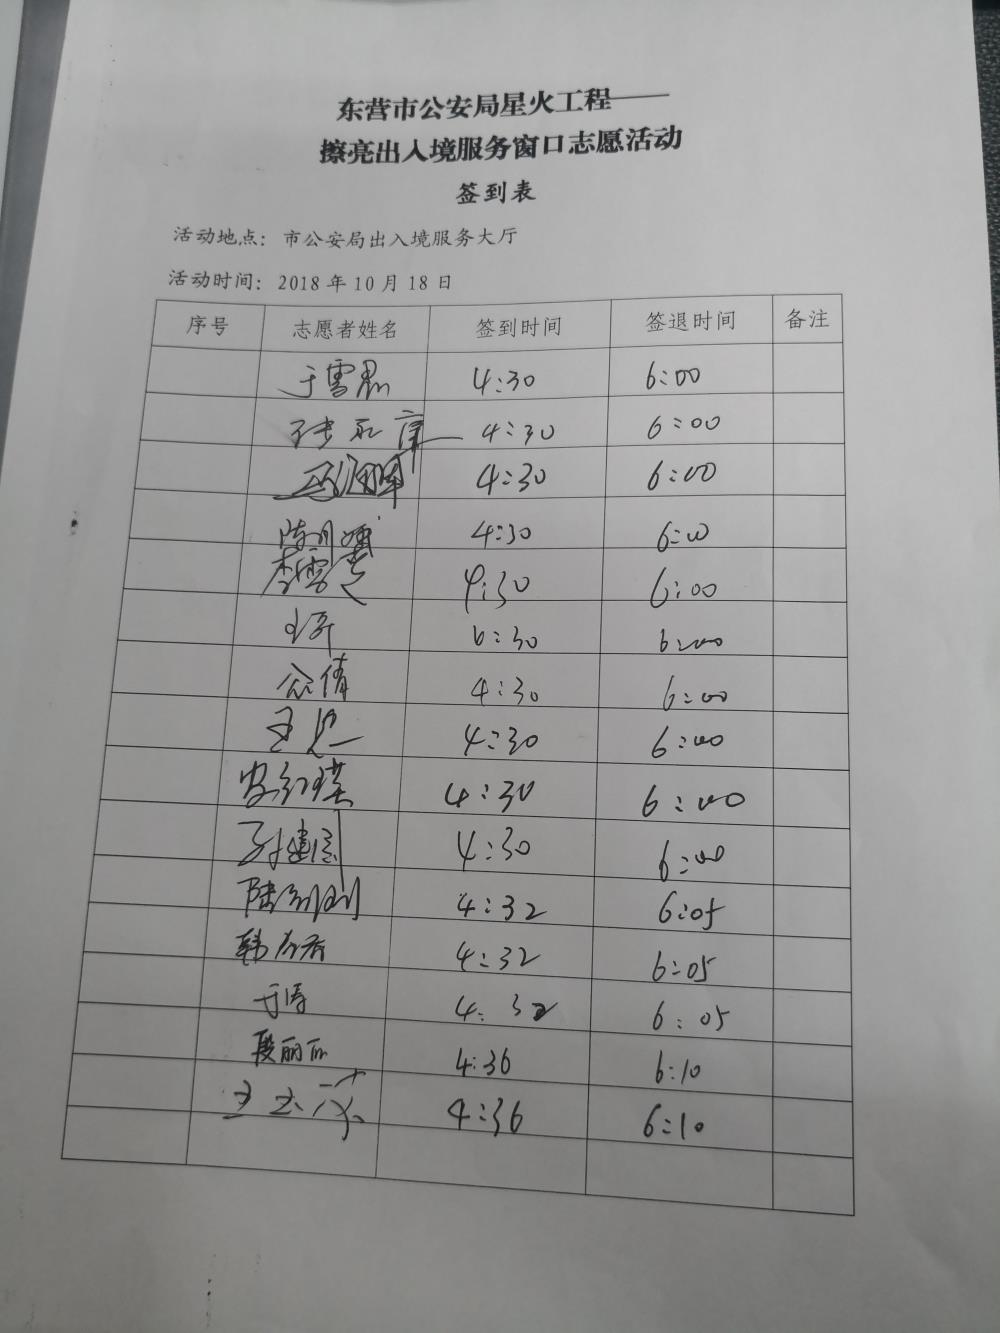 东营市公安局星火工程——
擦亮出入境服务窗口志愿活动
签到表
活动地点：市公安局出入境服务大厅
活动时间：2018年10月18日
序号 志愿者姓名 签到时间 签退时间 备注
于雪 4:30 6:00
张永 4:30 6:00
4:30 6:00
陈月 4:30 6:00
李雪 4:30 6:00
6:30 6:00
倩 4:30 6:00
王 4:30 6:00
4:30 6:00
孙建国 4:30 6:00
陆 4:32 6:05
韩 4:32 6:05
于涛 4:32 6:05
段丽丽 4:36 6:10
王玉萍 4:36 6:10